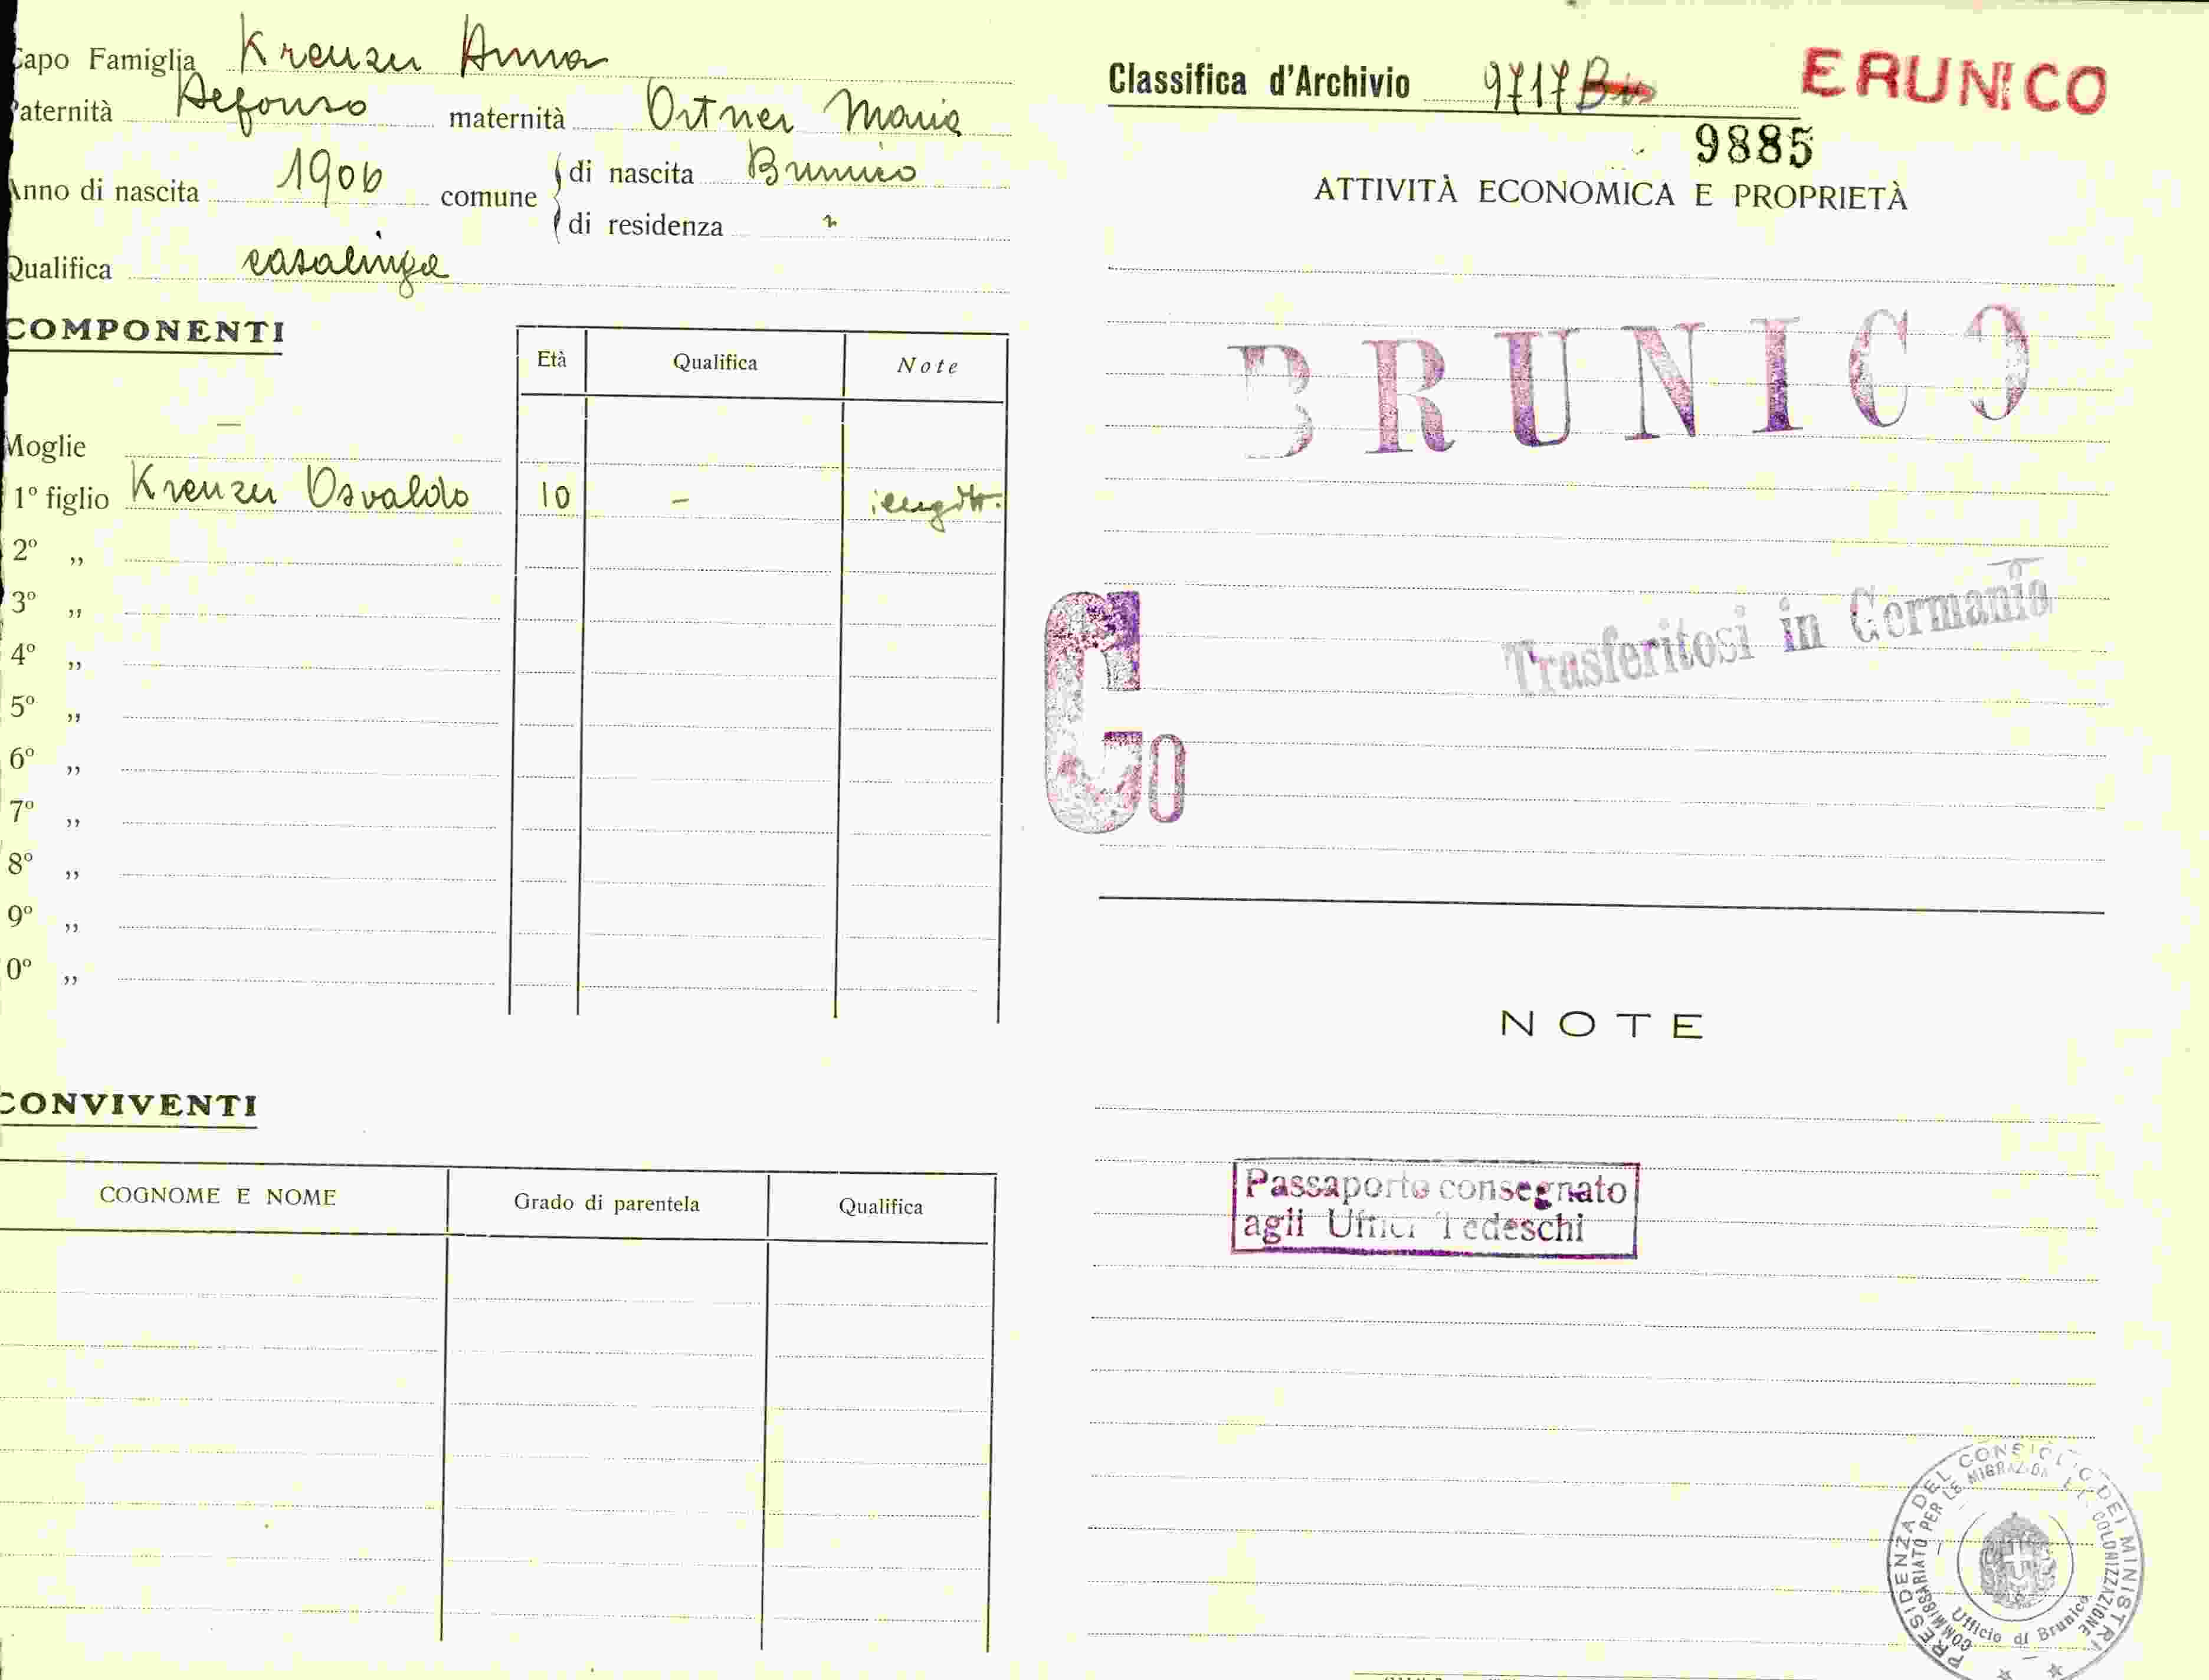 Capo Famiglia Kreuzer Anna
Paternità Alfonso maternità Ortner Maria
Anno di nascita 1906 comune di nascita Brunico
di residenza "
Qualifica casalinga
COMPONENTI
Età Qualifica Note
Moglie —
1º figlio Kreuzer Osvaldo 10 - illegitt.
2º „
3º „
4º „
5º „
6º „
7º „
8º „
9º „
0º „
CONVIVENTI
COGNOME E NOME Grado di parentela Qualifica
Classifica d'Archivio 9717 Bis
BRUNICO
9885
ATTIVITÀ ECONOMICA E PROPRIETÀ
BRUNICO
Trasferitosi in Germania
G0
NOTE
Passaporto consegnato
agli Uffici Tedeschi
PRESIDENZA DEL CONSIGLIO DEI MINISTRI
COMMISSARIATO PER LE MIGRAZIONI E LA COLONIZZAZIONE
Ufficio di Brunico